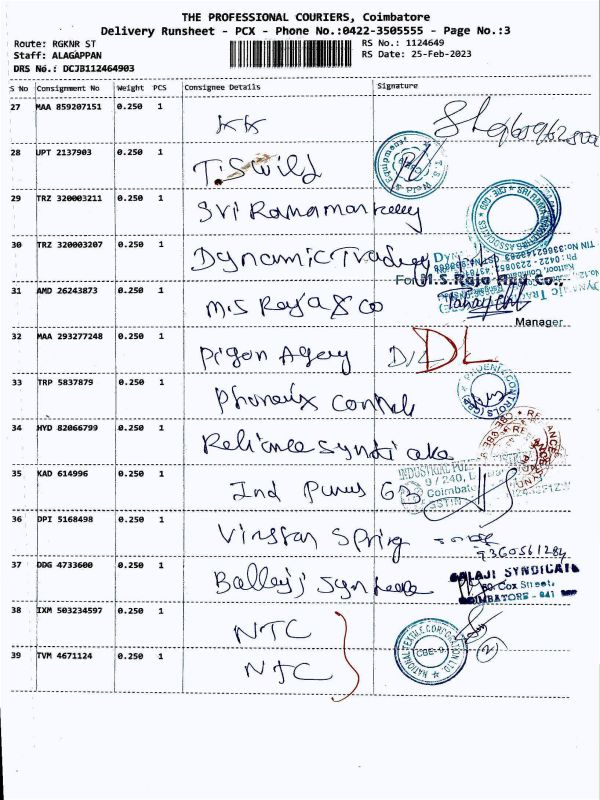 THE PROFESSIONAL COURIERS, Coimbatore
Delivery Runsheet - PCX - Phone No.:0422-3505555 - Page No.:3
Route: RGKNR ST
RS No.: 1124649
Staff: ALAGAPPAN
RS Date: 25-Feb-2023
DRS No.: DCJB112464903
S No Consignment No Weight PCS Consignee Details Signature
27 MAA 859207151 0.250 1 KK
28 UPT 2137903 0.250 1 T.S Wild
29 TRZ 320003211 0.250 1 Sri Ramaman
30 TRZ 320003207 0.250 1 Dynamic Trading
For M.S.Raja And Co.,
31 AMD 26243873 0.250 1 M.S Raja & Co
Manager
32 MAA 293277248 0.250 1 Pigon Agery D/L DL
33 TRP 5837879 0.250 1 Phoneix Controls
PHOENIX CONTROLS (CBE)
34 HYD 82066799 0.250 1 Reliance Syndicate
35 KAD 614996 0.250 1 Ind Pumps
INDUSTRIAL
9 / 240,
Coimbatore
GSTIN
36 DPI 5168498 0.250 1 Vinstar Spring
9360561284
37 DDG 4733600 0.250 1 Balleyji Syndicate
BALAJI SYNDICATE
Cox Street,
COIMBATORE - 641
38 IXM 503234597 0.250 1 NTC
NATIONAL TEXTILE CORPORATION LTD.
CBE-9
2
39 TVM 4671124 0.250 1 NTC